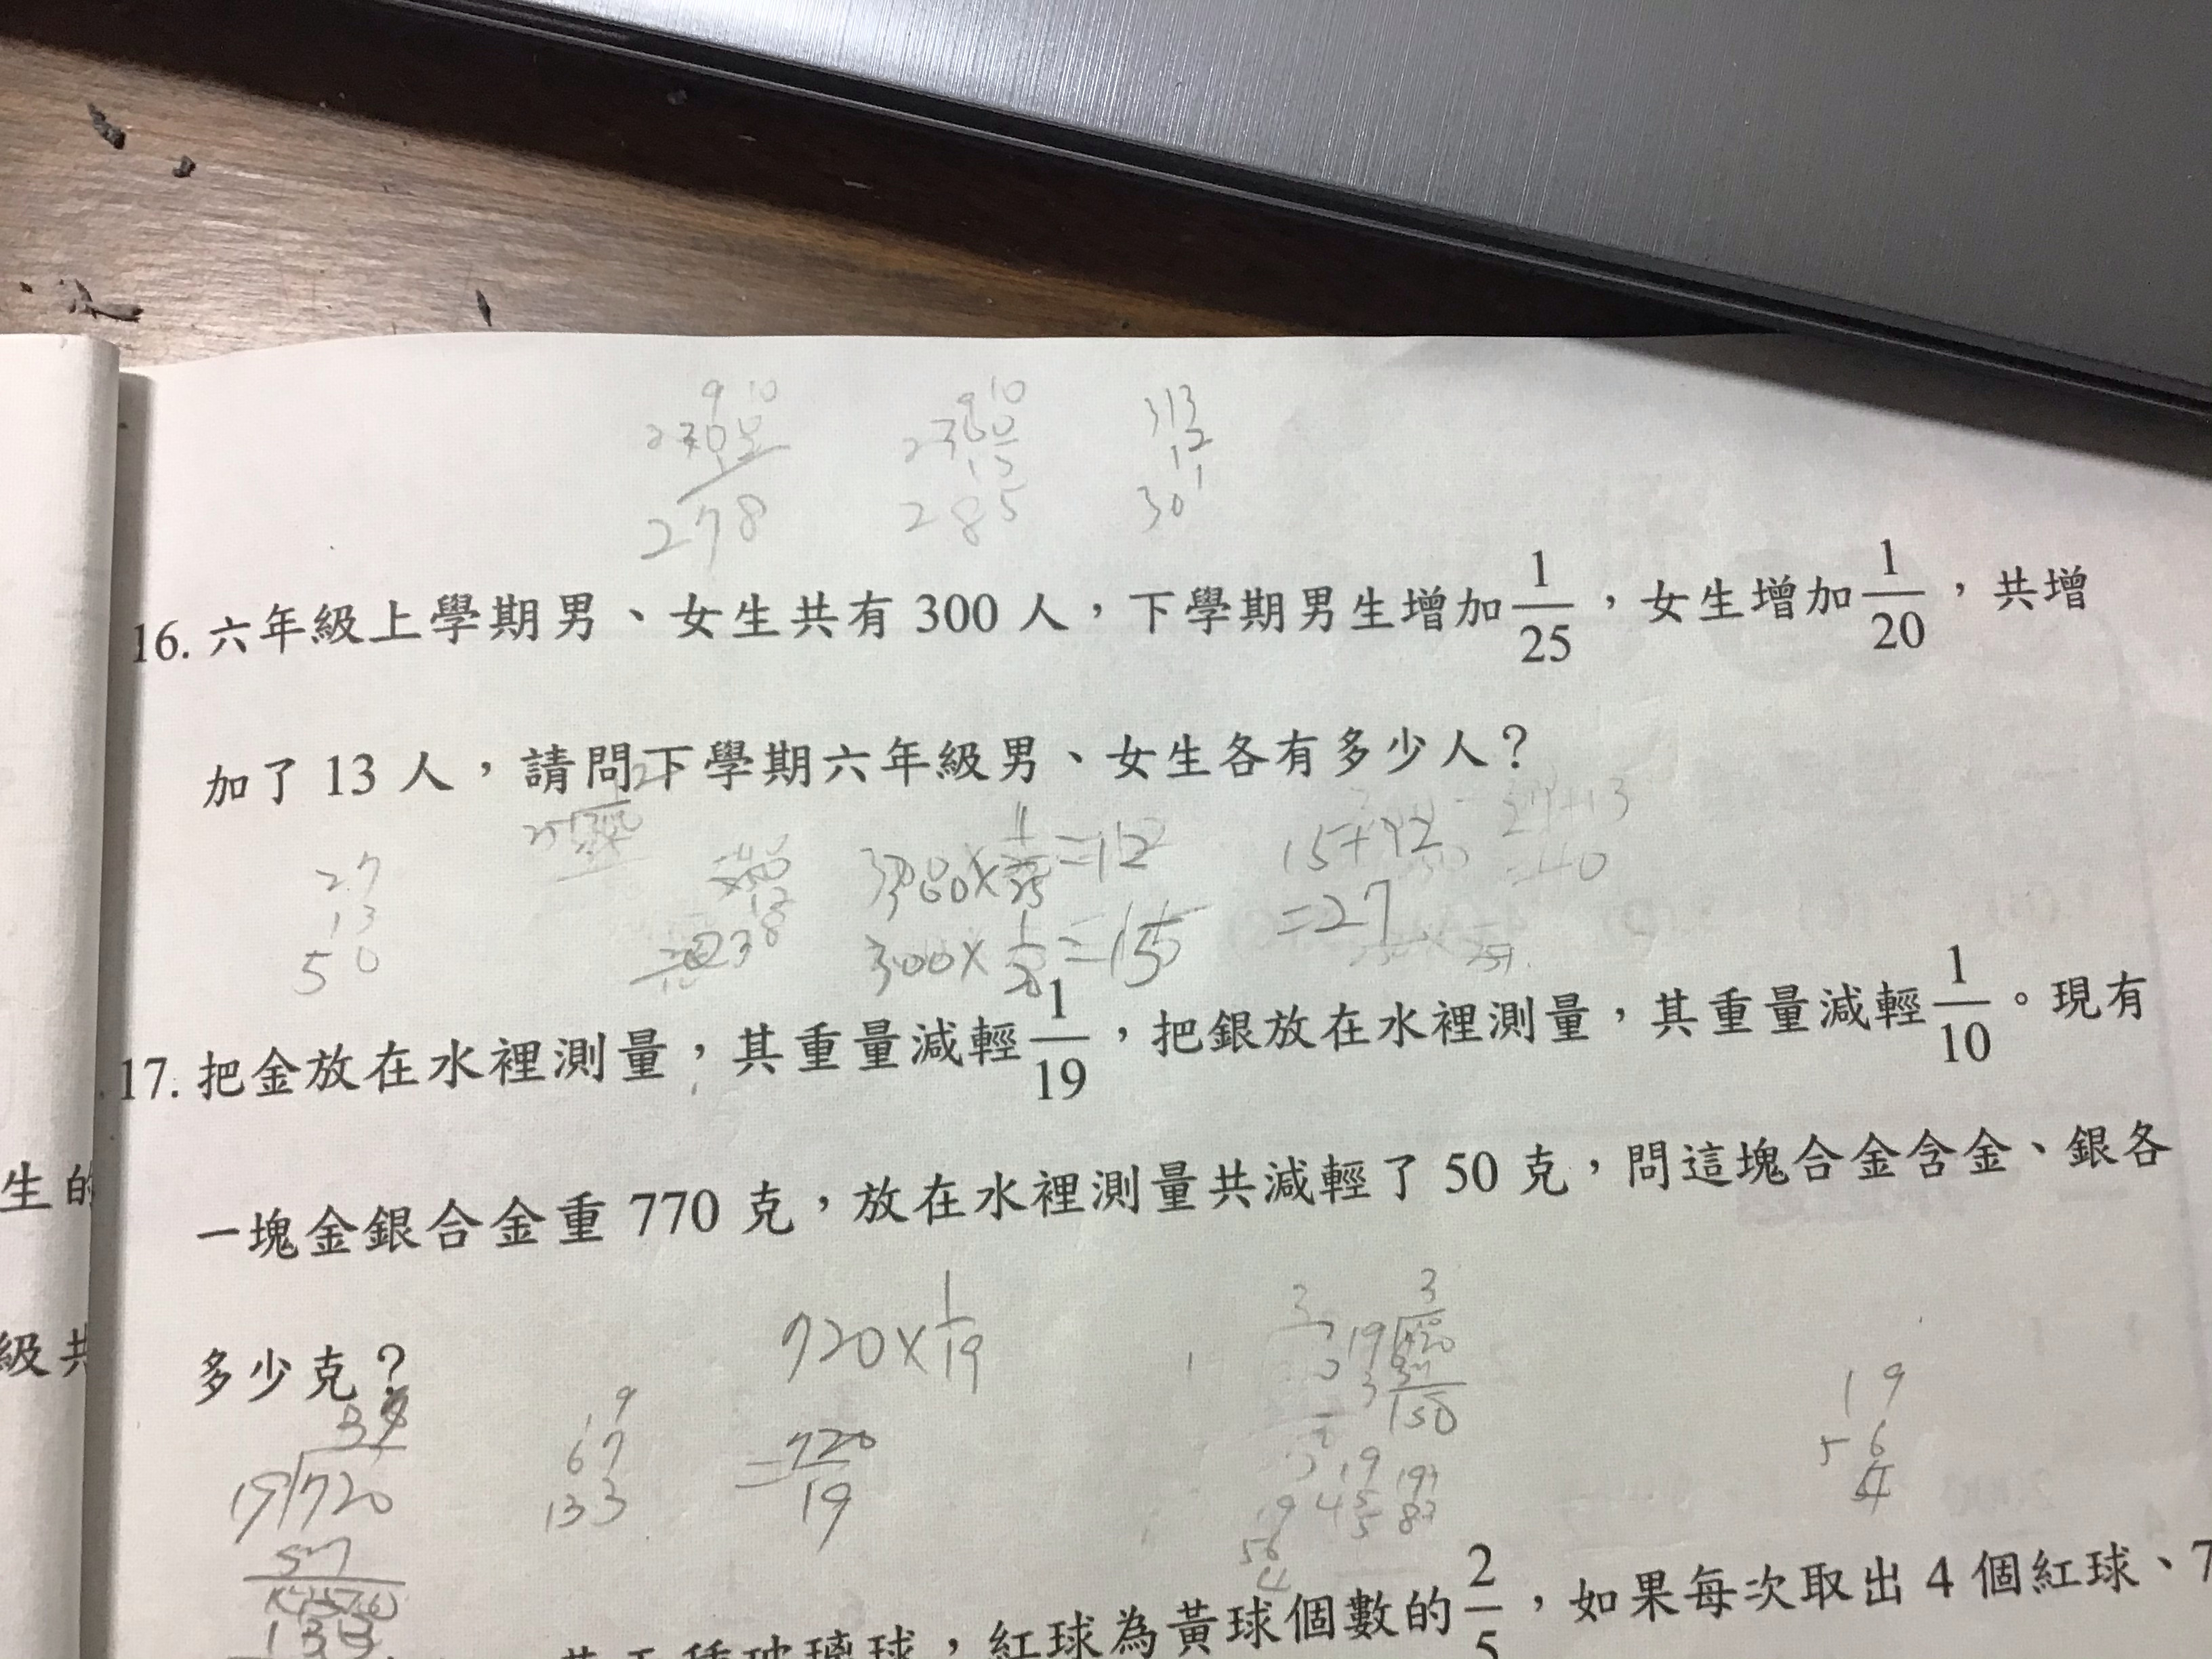 9 10
278
9 10
15
285
313
12
301
16. 六年級上學期男、女生共有 300 人，下學期男生增加1/25，女生增加1/20，共增
加了 13 人，請問下學期六年級男、女生各有多少人？
27
13
50
300×1/25=12
300×1/20=15
15+12
=27
27+13
=40
17. 把金放在水裡測量，其重量減輕1/19，把銀放在水裡測量，其重量減輕1/10。現有
一塊金銀合金重 770 克，放在水裡測量共減輕了 50 克，問這塊合金含金、銀各
多少克？
720×1/19
=720/19
19
67
133
19 720
57
133
3
19 720
57
150
19
56
4
生的
級共
種玻璃球，紅球為黃球個數的2/5，如果每次取出 4 個紅球、7